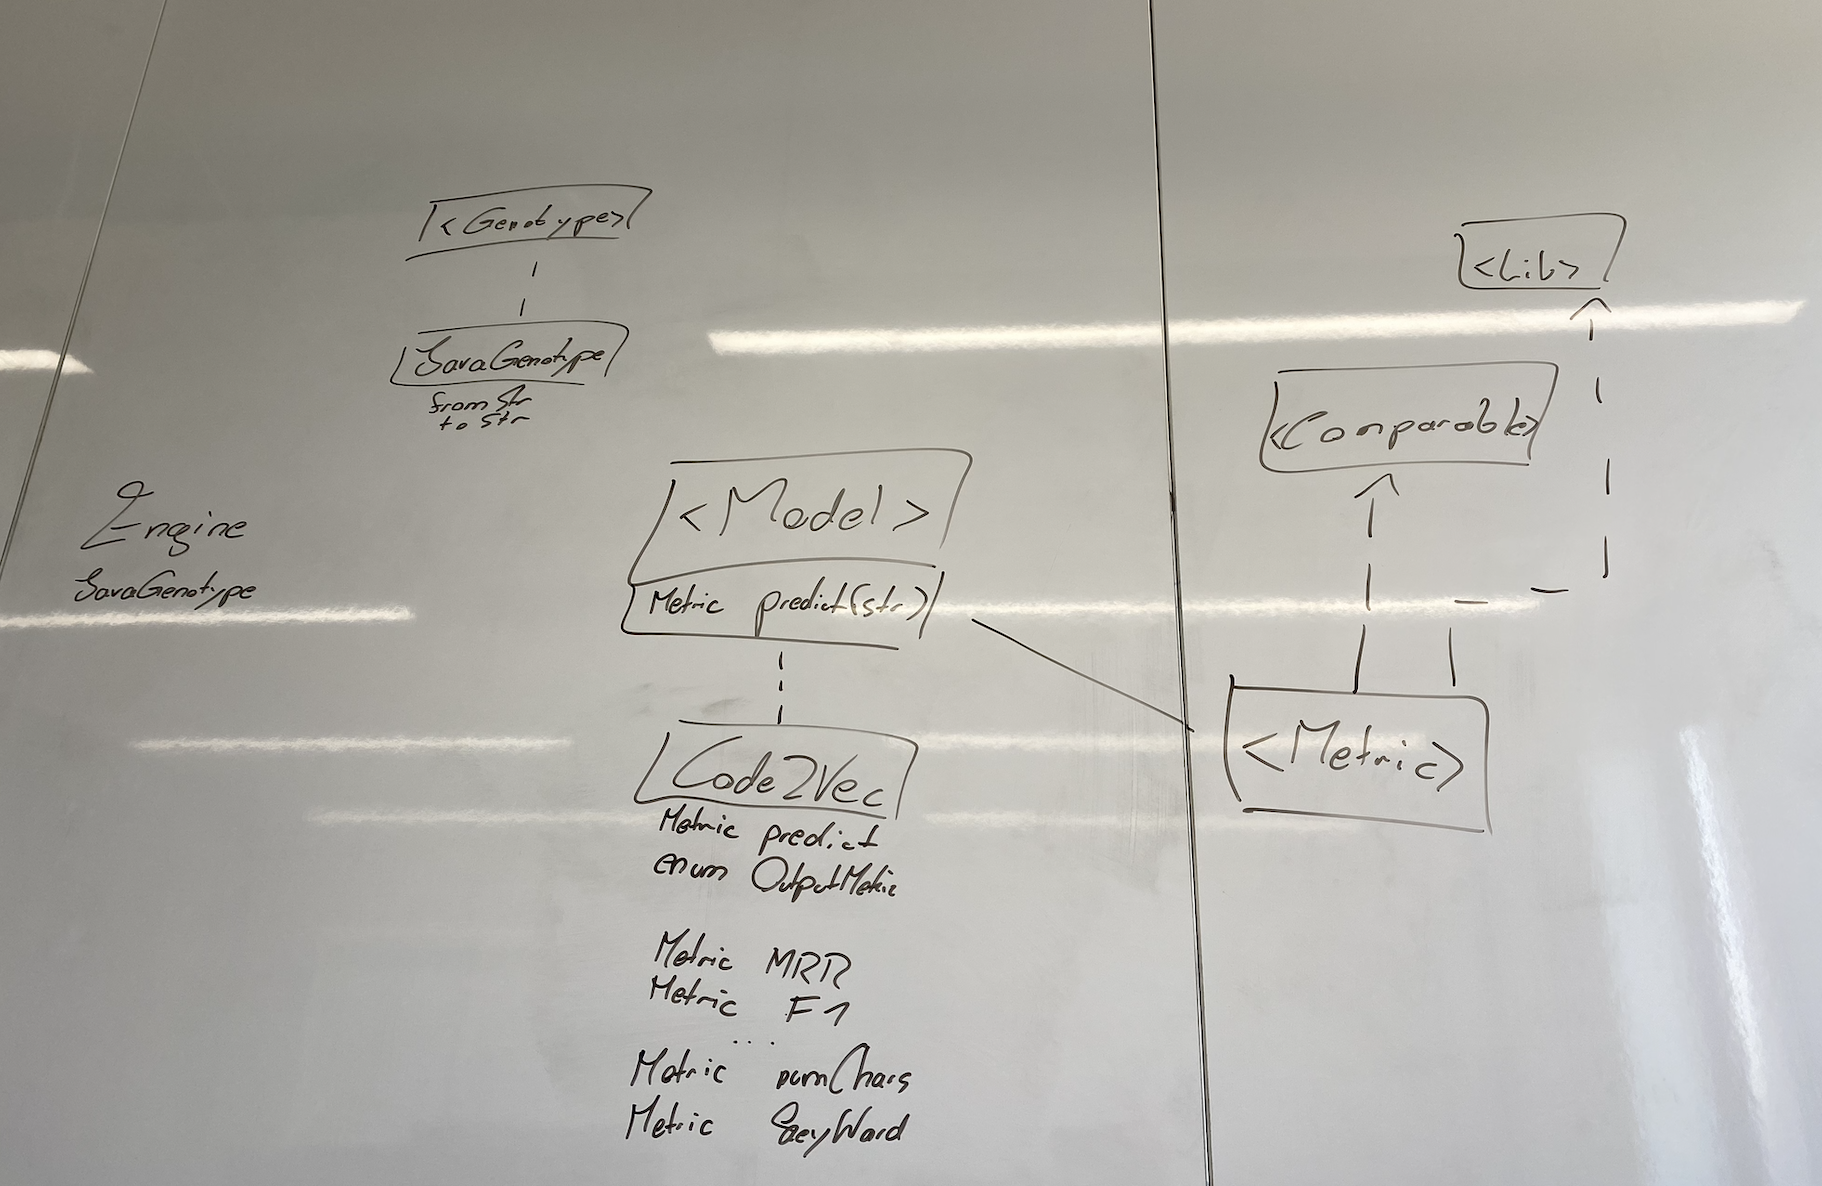 <Genotype>
JavaGenotype
from Str
to Str
Engine
JavaGenotype
<Model>
Metric predict(str)
Code2Vec
Metric predict
enum OutputMetric
Metric MRR
Metric F1
...
Metric numChars
Metric
<Lib>
<Comparable>
<Metric>